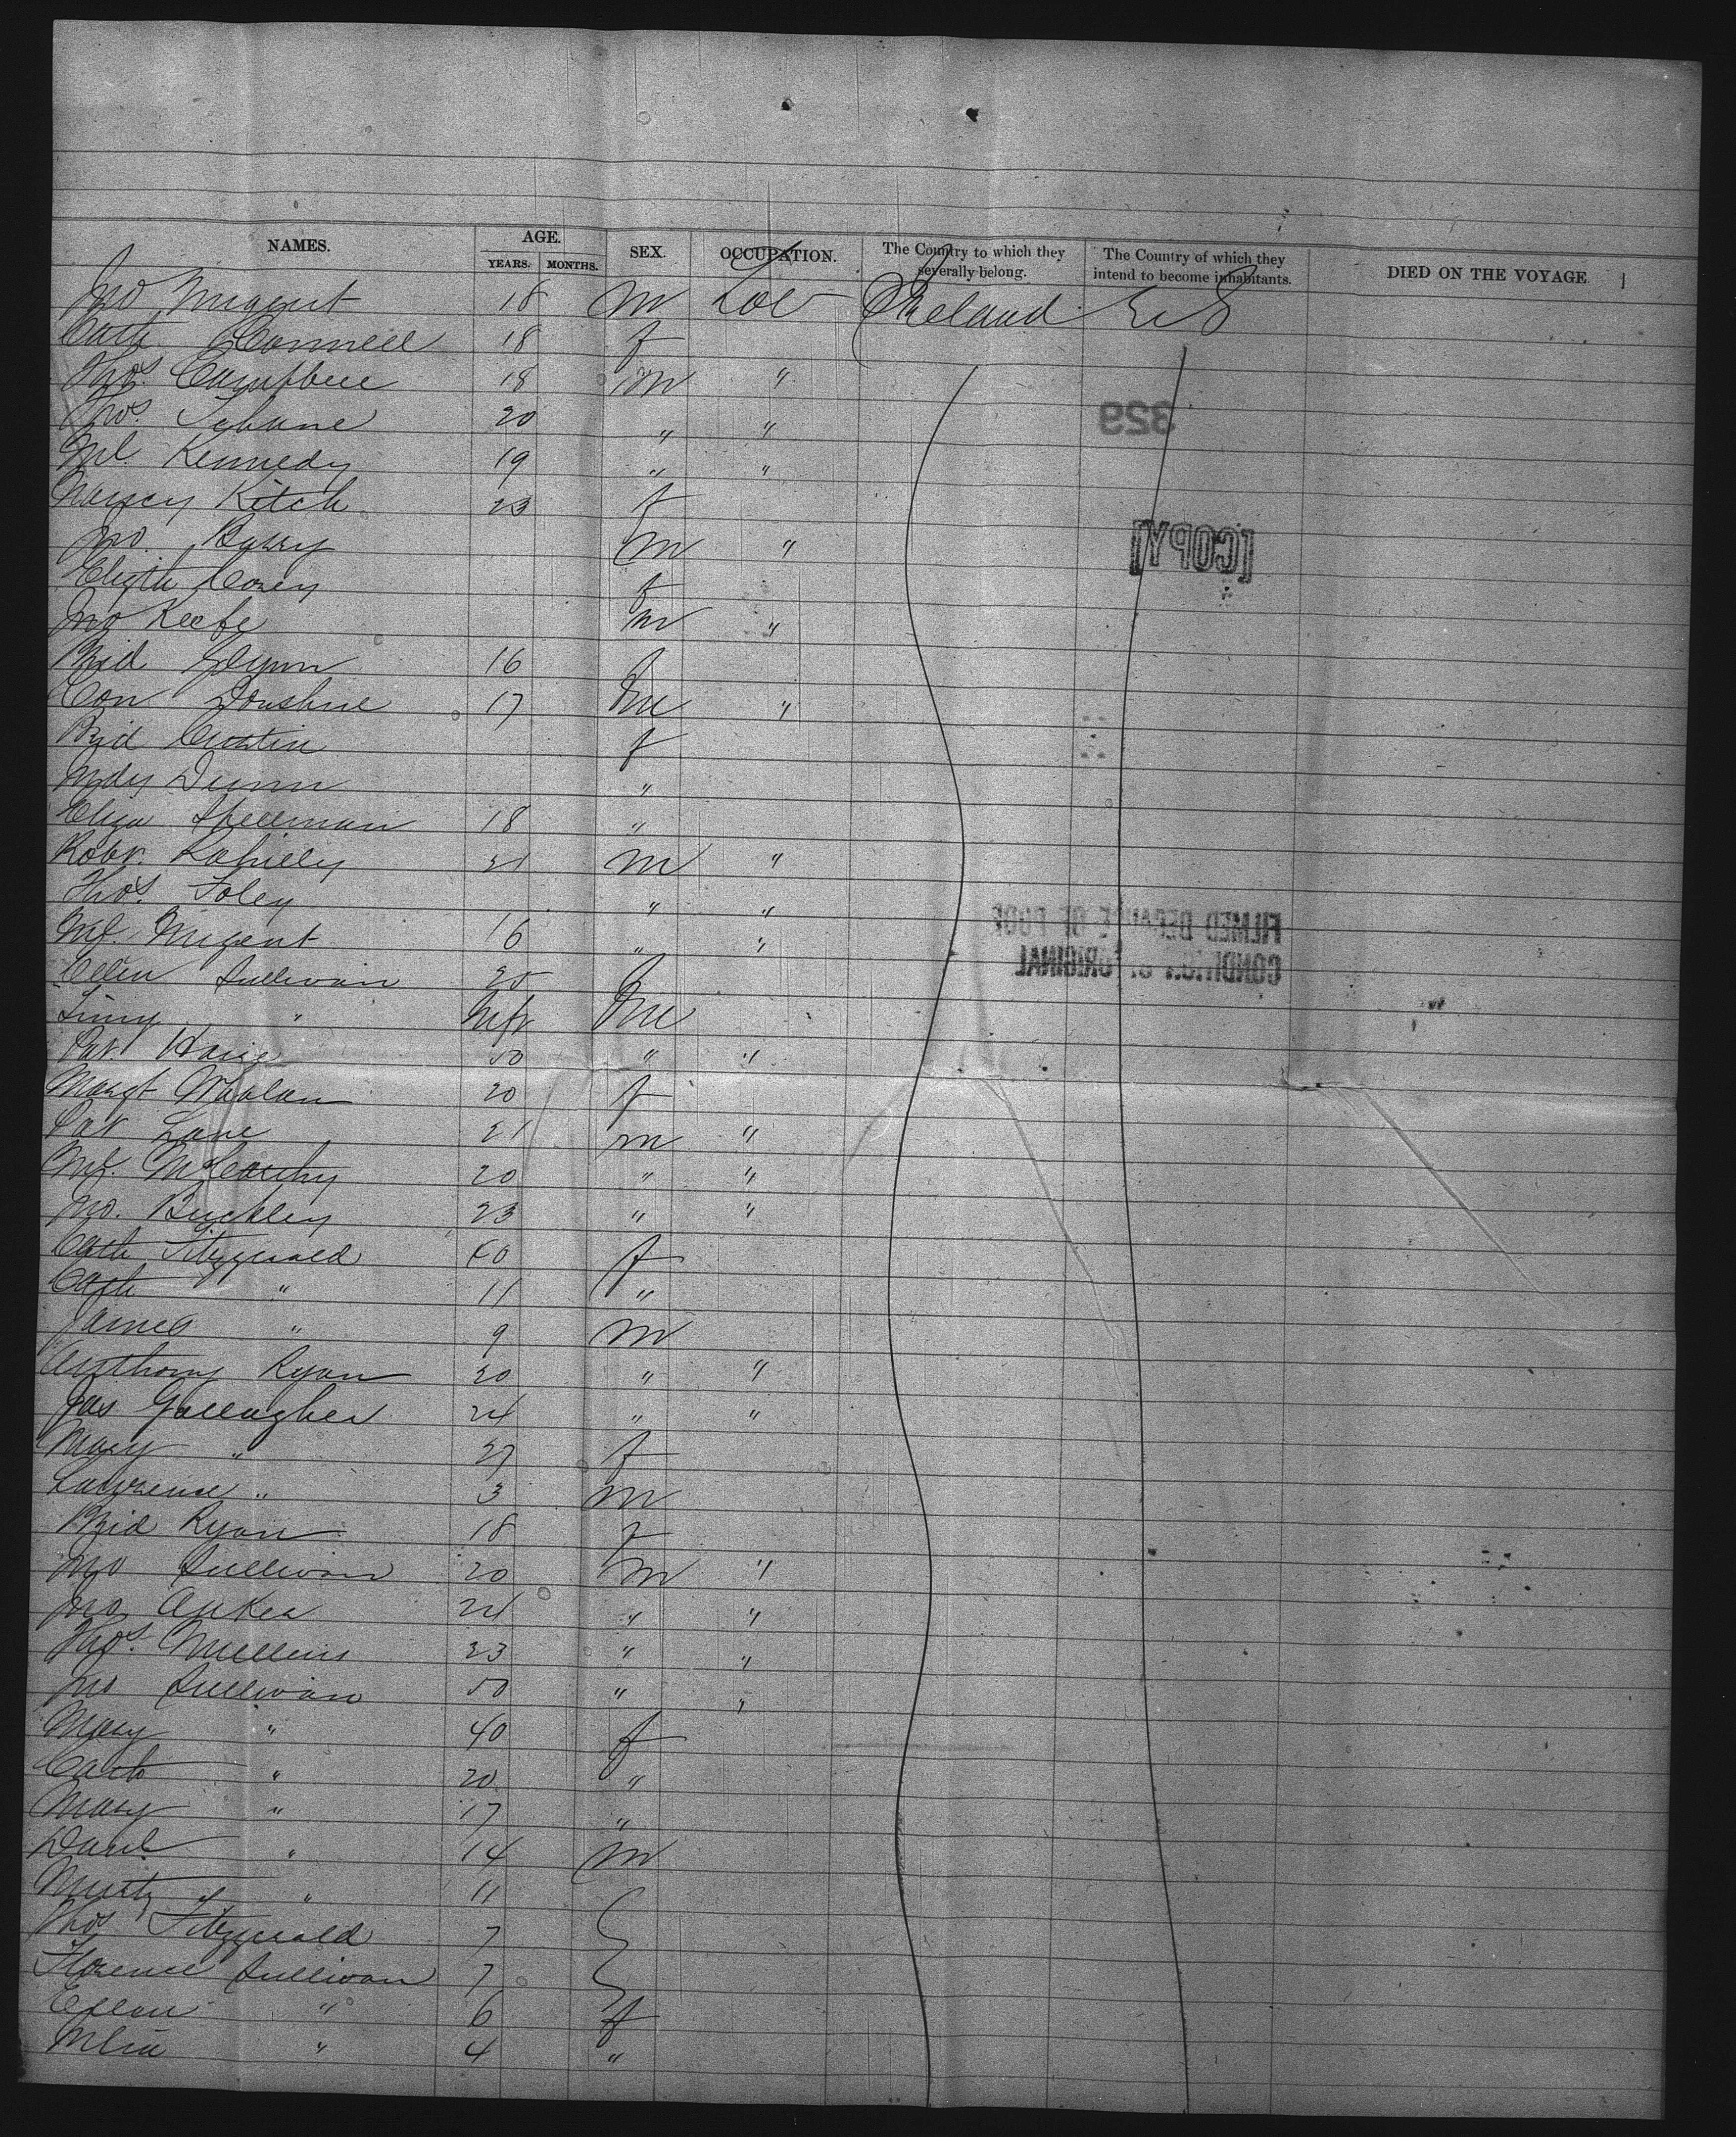 NAMES. AGE. YEARS. MONTHS. SEX. OCCUPATION. The Country to which they severally belong. The Country of which they intend to become inhabitants. DIED ON THE VOYAGE
Jno Nugent 18 m Lab Ireland U S
Cath Connell 18 f
Thos. Campbell 18 m "
Thos. 20 " "
Ml. Kennedy 19 " "
Nancy Kitch 23 f
Jno. Barry m "
Elizth Corey f
Jno Keefe m "
Brid Glynn 16 f
Con Donahue 17 m "
Brid Costin f
Dunn "
Eliza Spellman 18 "
Robt. 21 m "
Thos. Foley " "
Ml. Nugent 16 " "
Ellen Sullivan 25 f
" Inft m
Pat. 50 " "
Margt Whalan 20 f
Pat Lane 21 m "
Ml. McCarthy 20 " "
Jno. Buckley 23 " "
Cath Fitzgerald 40 f
Cath " 11 "
James " 9 m
Anthony Ryan 20 " "
Jas Gallagher 24 " "
Mary " 27 f
Lawrence " 3 m
Brid Ryan 18 f
Jno Sullivan 20 m "
Jno 24 " "
Thos. Mullins 23 " "
Jno Sullivan 50 " "
Mary " 40 f
Cath " 20 "
Mary " 17 "
Danl " 14 m
Murty " 11
Thos Fitzgerald 7
Florence Sullivan 7
Ellen " 6 f
" 4 "
329
[COPY]
FILMED BECAUSE OF POOR
CONDITION OF ORIGINAL